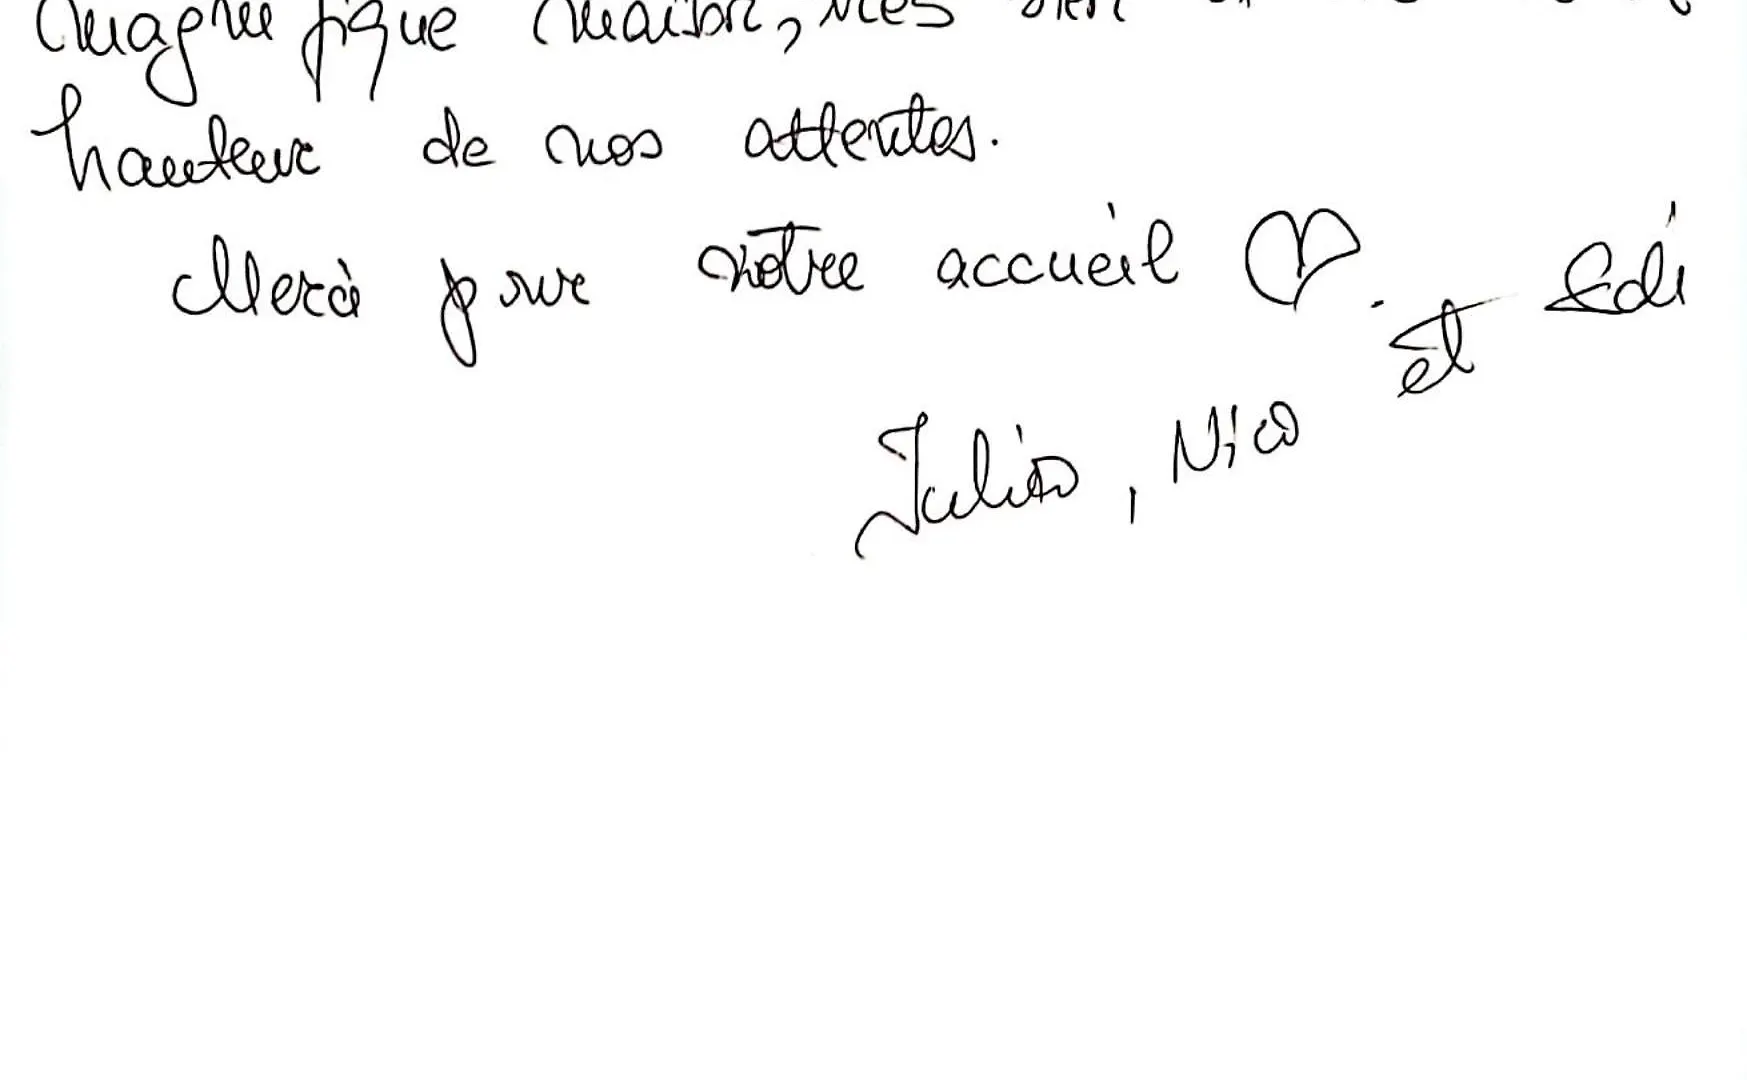 magnifique maison, très bien
hauteur de nos attentes.
Merci pour votre accueil ♡.
Julien, Nico et Edi